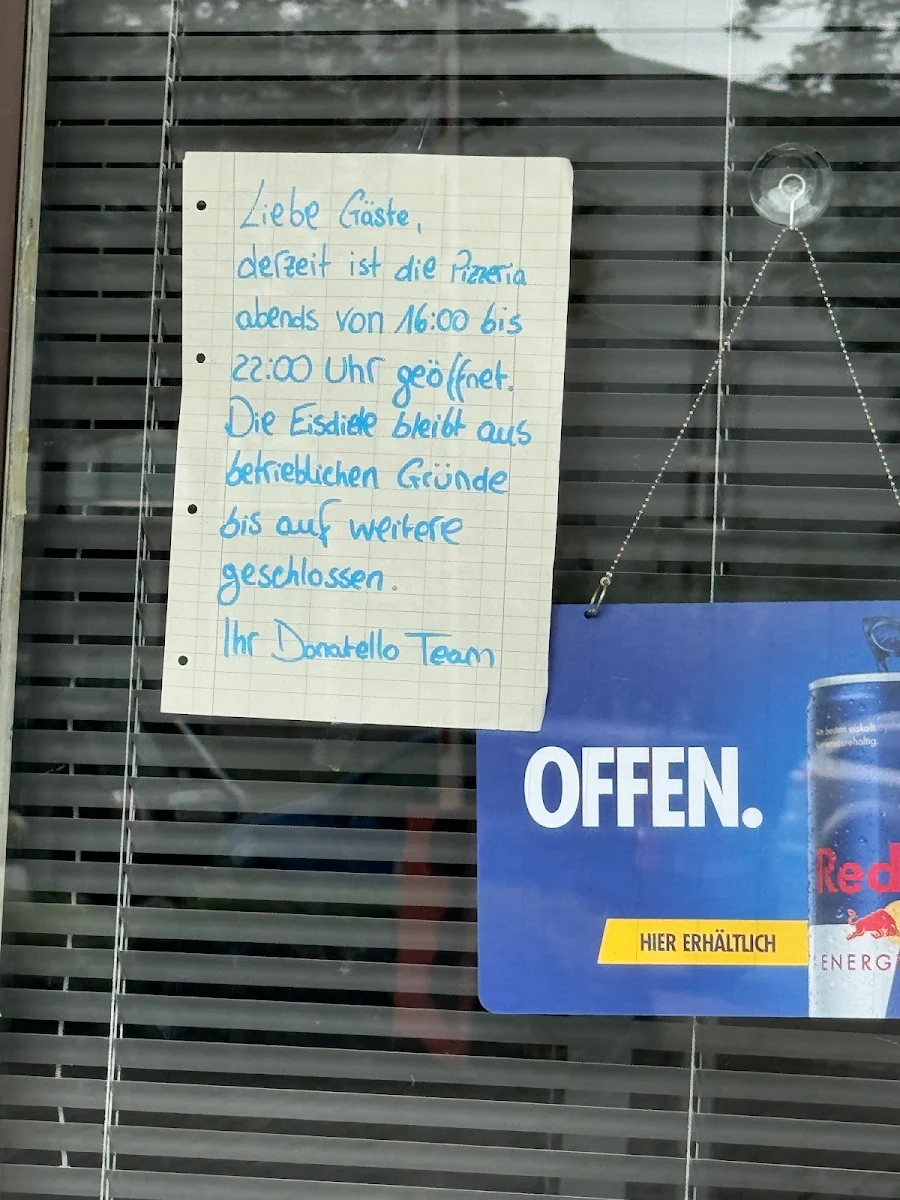 Liebe Gäste,
derzeit ist die Pizzeria
abends von 16:00 bis
22:00 Uhr geöffnet.
Die Eisdiele bleibt aus
betrieblichen Gründe
bis auf weitere
geschlossen.
Ihr Donatello Team
OFFEN.
HIER ERHÄLTLICH
Am besten eiskalt
Red
ENERG